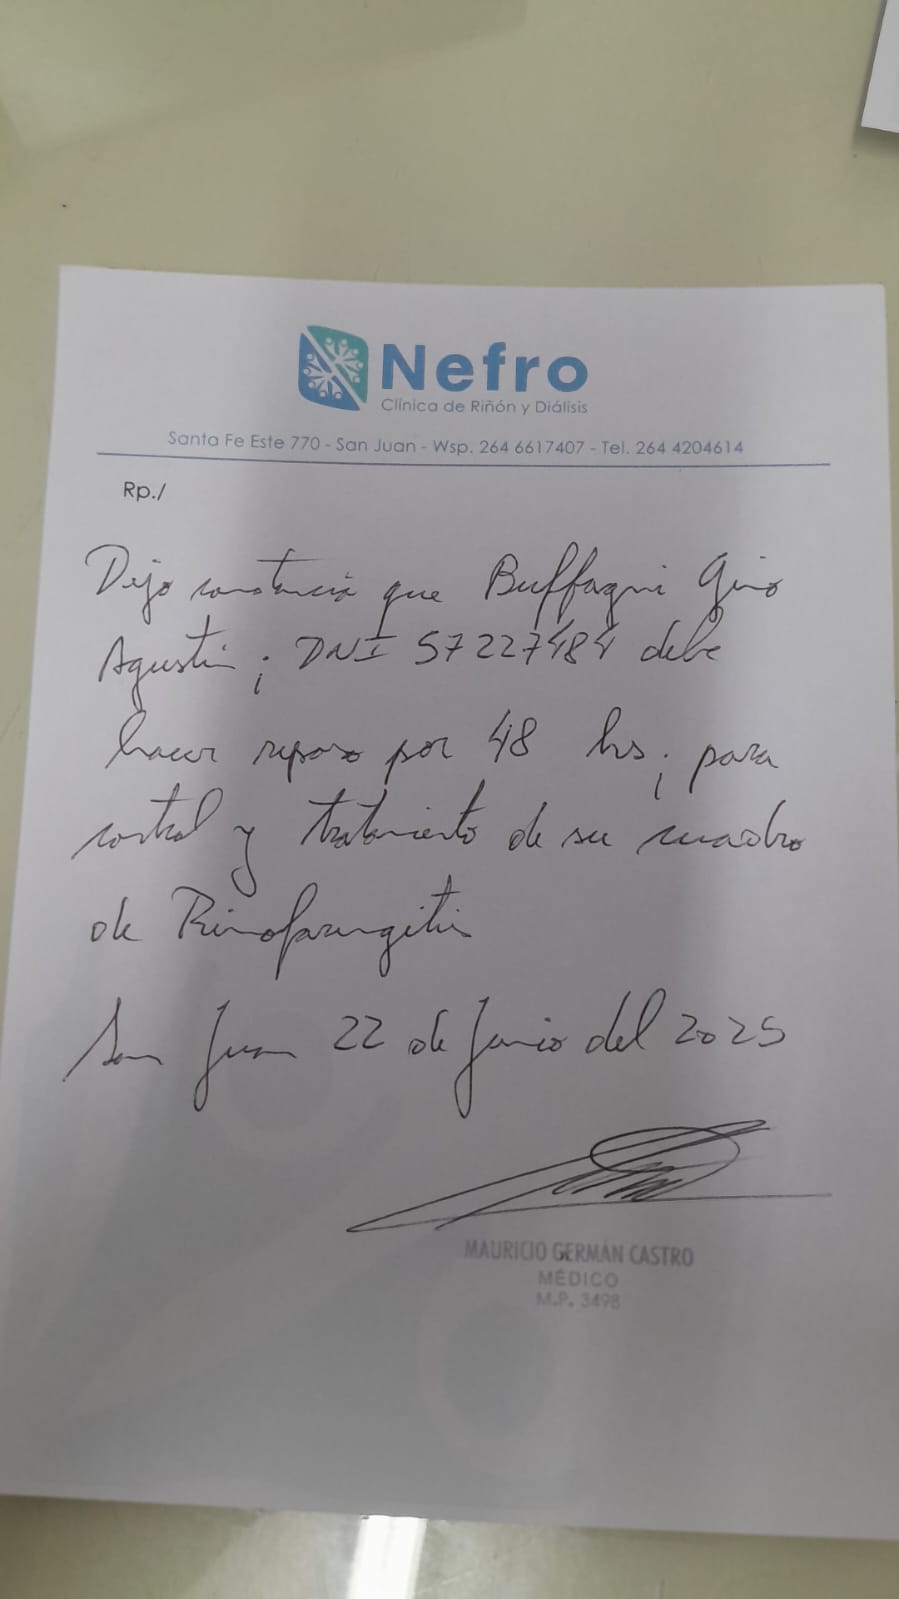 Nefro
Clínica de Riñón y Diálisis
Santa Fe Este 770 - San Juan - Wsp. 264 6617407 - Tel. 264 4204614
Rp./
Dejo constancia que Buffagni Gino
Agustin ; DNI 57227484 debe
hacer reposo por 48 hs ; para
control y tratamiento de su cuadro
de Rinofaringitis
San Juan 22 de Junio del 2025
MAURICIO GERMÁN CASTRO
MÉDICO
M.P. 3498